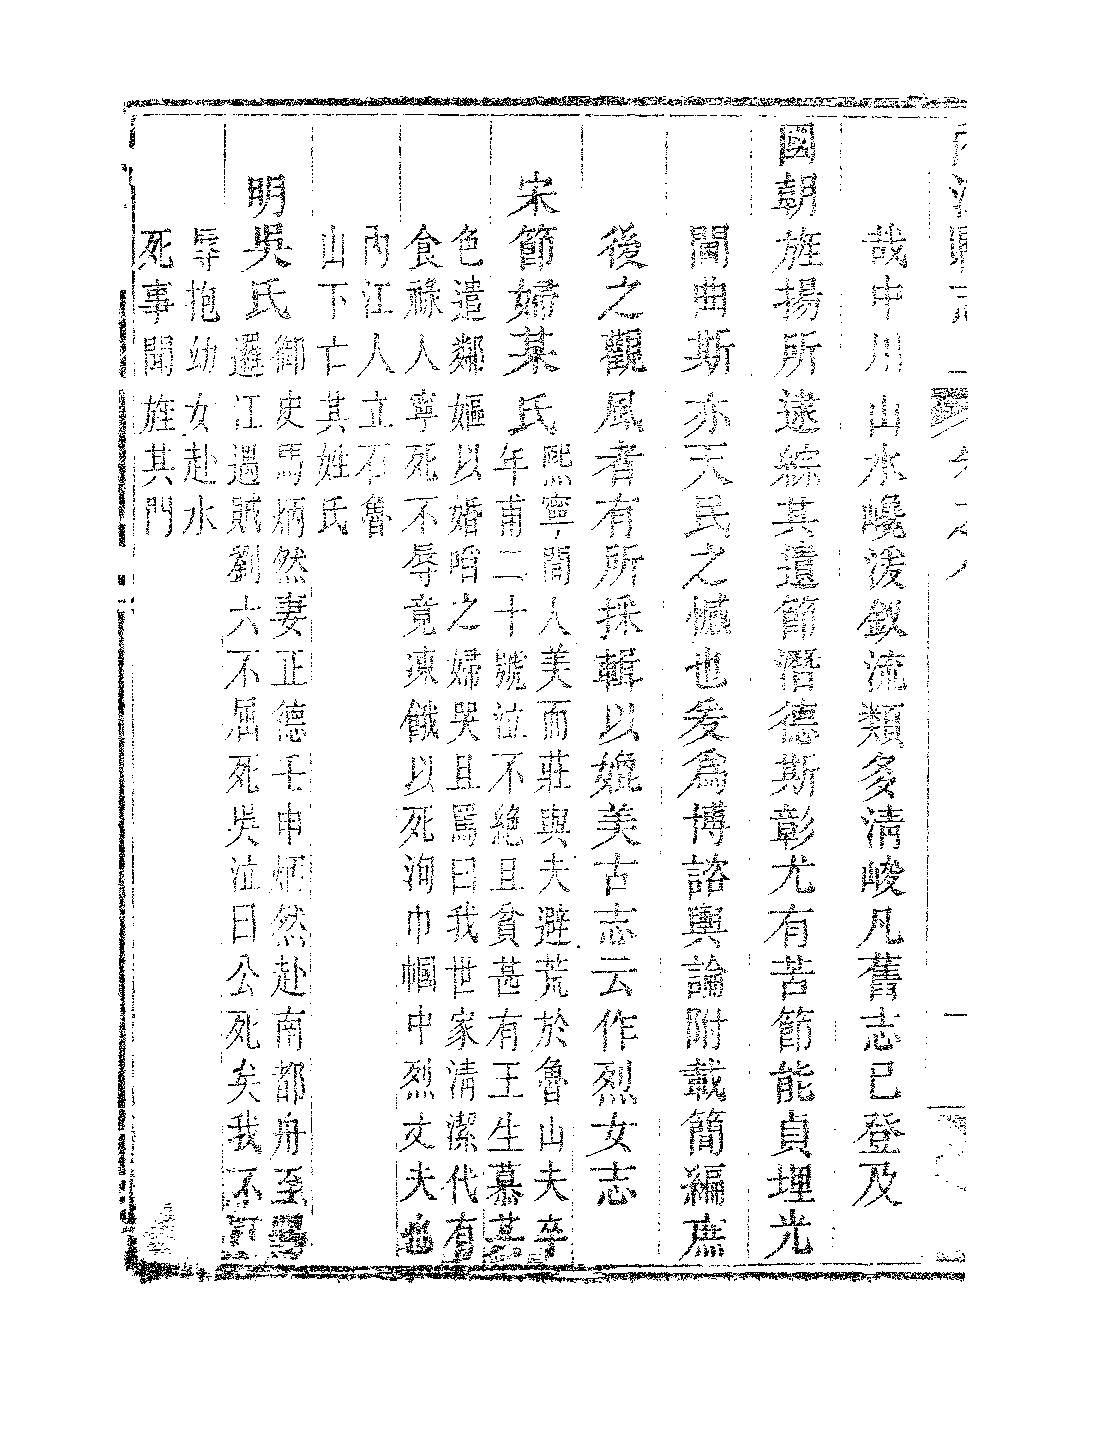 哉中川山水巉湲釵流類多清峻凡舊志已登及
國朝旌揚所逮綜其遺節潛德斯彰尤有苦節能貞埋光
閭曲斯亦天民之憾也爰爲博諮輿論附載簡編庶
後之觀風者有所採輯以媲美古志云作烈女志
宋節婦某氏
熙寧間人美而莊與夫避荒於魯山夫卒
年甫二十號泣不絕且貧甚有王生慕其
色遣鄰嫗以婚啗之婦哭且罵曰我世家清潔代有
食祿人寧死不辱竟凍餓以死洵巾幗中烈丈夫也
內江人立石魯
山下亡其姓氏
明吳氏
御史馬炳然妻正德壬申炳然赴南都舟至
江遇賊劉六不屈死吳泣曰公死矣我不可
辱抱幼女赴水
死事聞旌其門